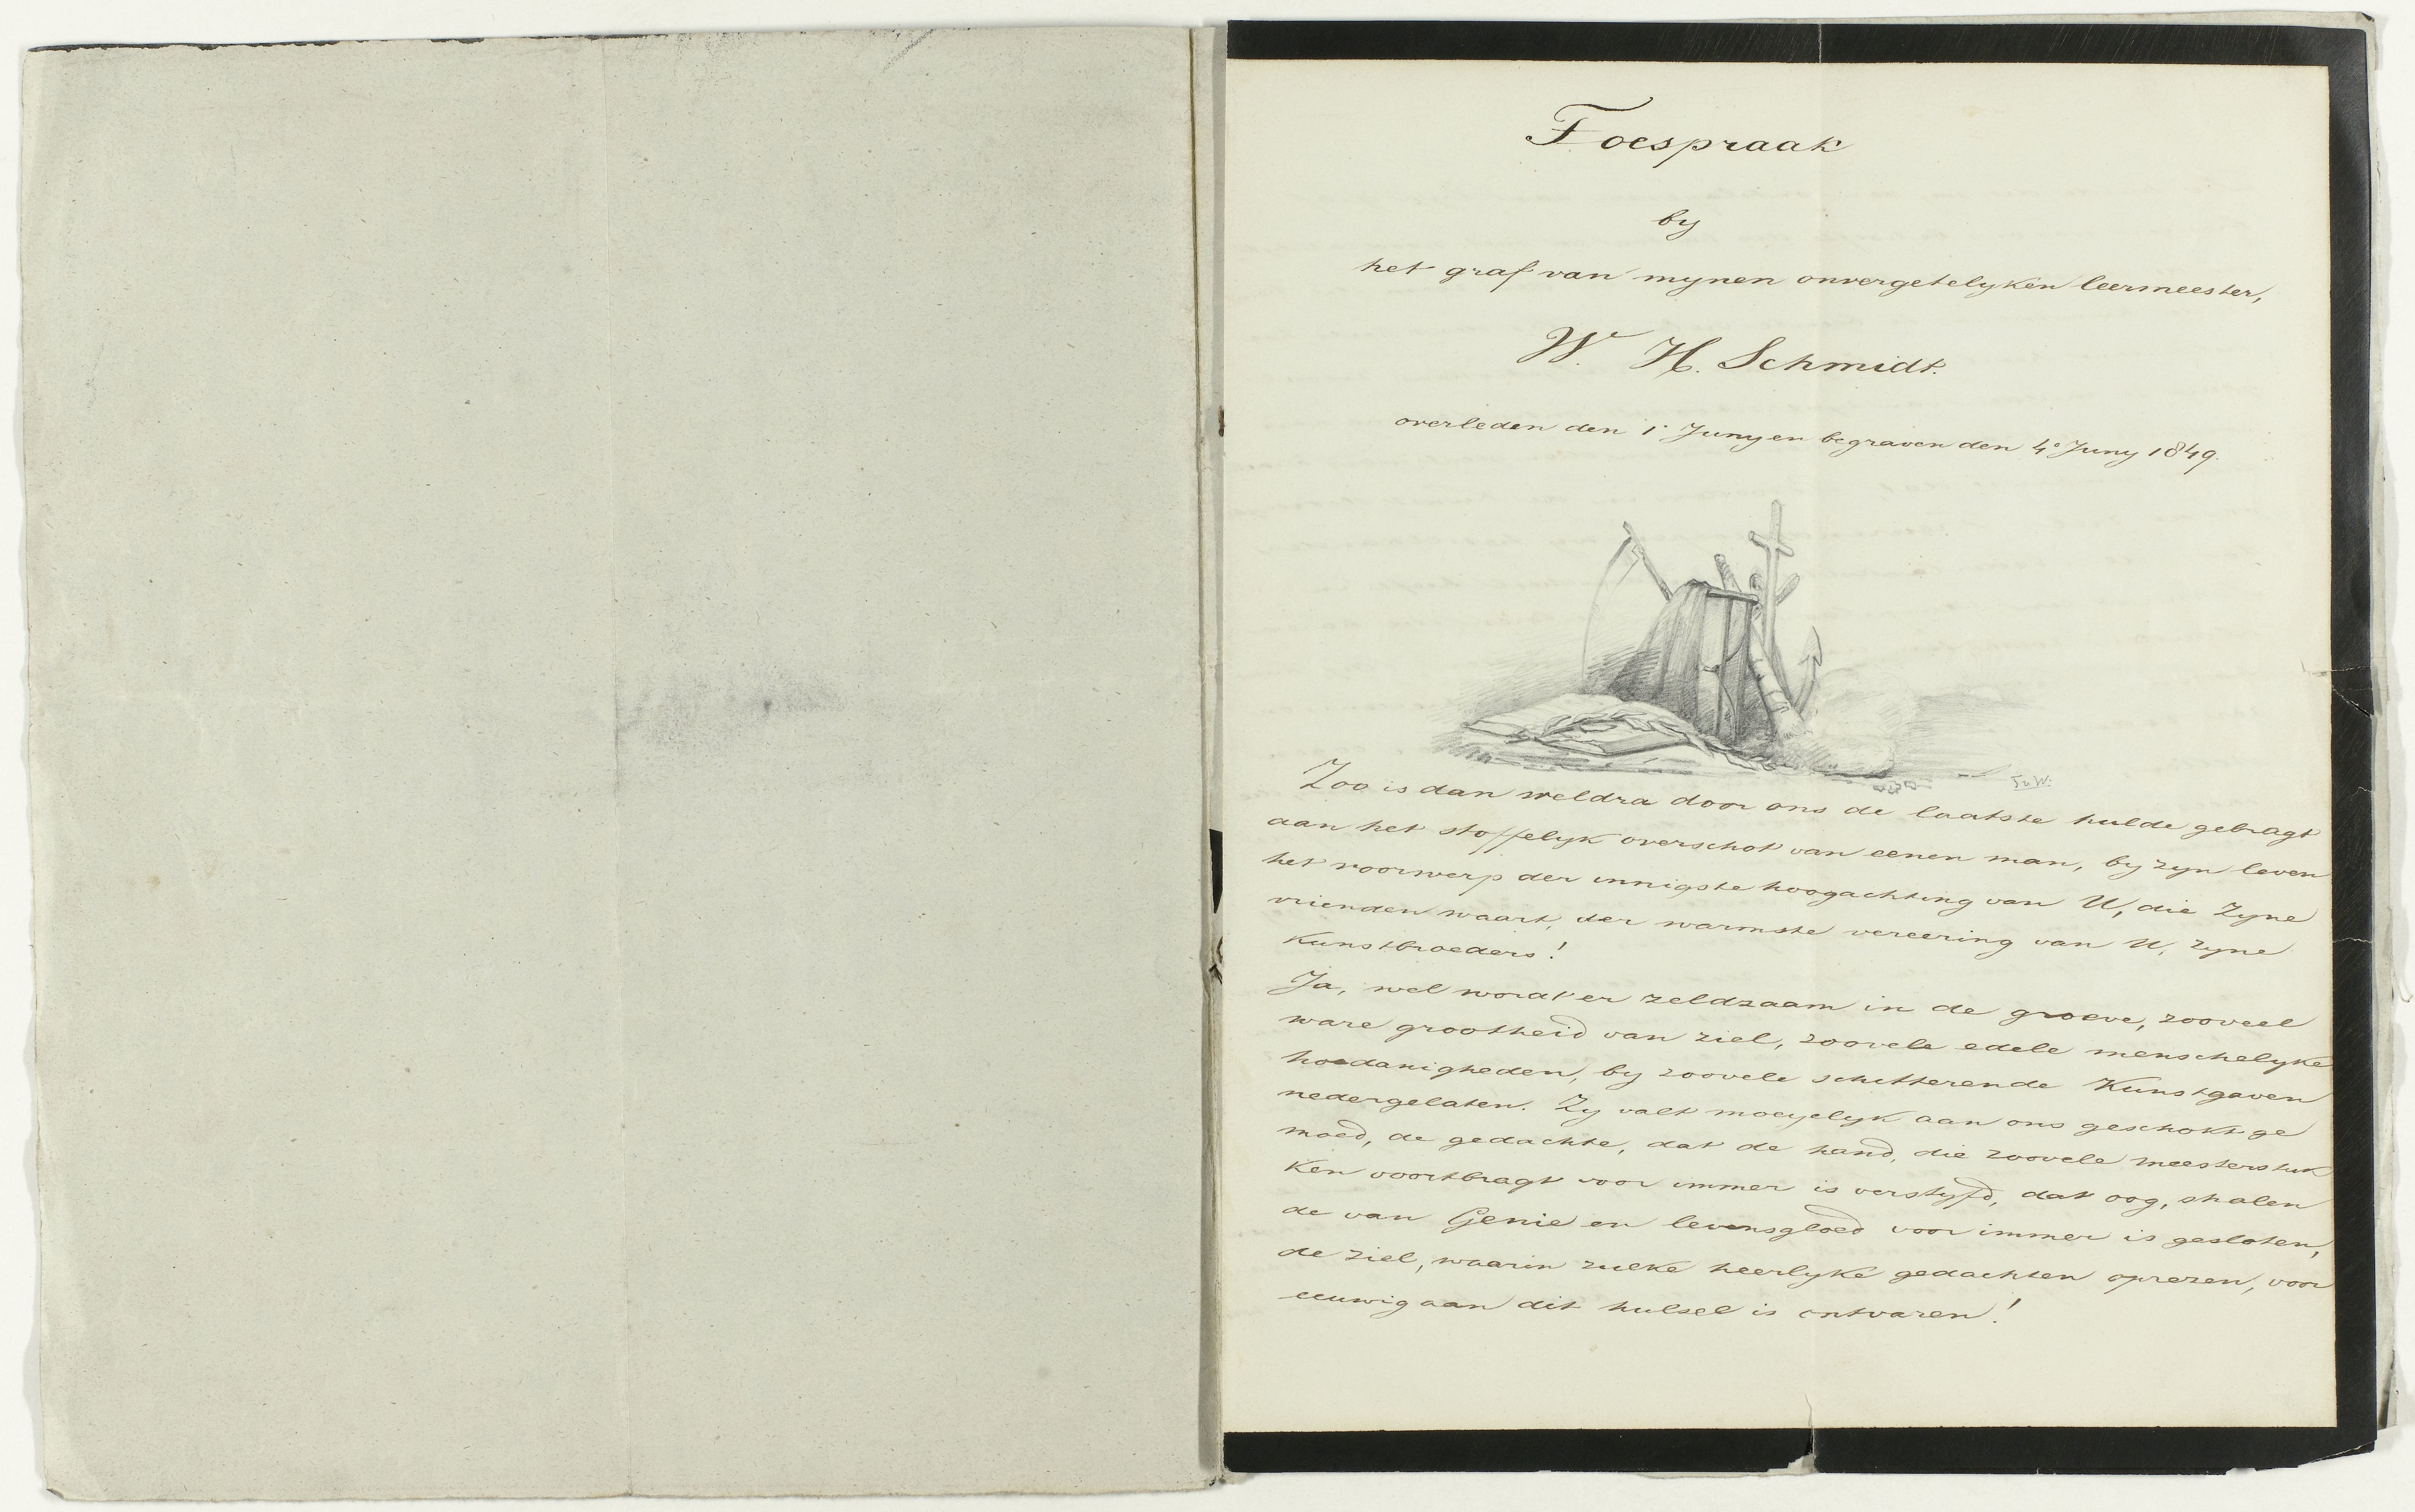 Toespraak
by
het graf van mynen onvergetelyken leermeester,
W. H. Schmidt.
overleden den 1e Juny en begraven den 4e Juny 1849.
Zoo is dan weldra door ons de laatste hulde gebragt
aan het stoffelyk overschot van eenen man, by zyn leven
het voorwerp der innigste hoogachting van U, die Zyne
vrienden waart, der warmste vereering van U, zyne
Kunstbroeders!
Ja, wel wordt er zeldzaam in de groeve, zooveel
ware grootheid van ziel, zoovele edele menschelyke
hoedanigheden, by zoovele schitterende Kunstgaven
nedergelaten. Zy valt moeyelyk aan ons geschokt ge
moed, de gedachte, dat de hand, die zoovele meesterstuk
ken voortbragt voor immer is verstyfd, dat oog, stralen
de van Genie en levensgloed voor immer is gesloten,
de ziel, waarin zulke heerlyke gedachten oprezen, voor
eeuwig aan dit hulsel is ontvaren!